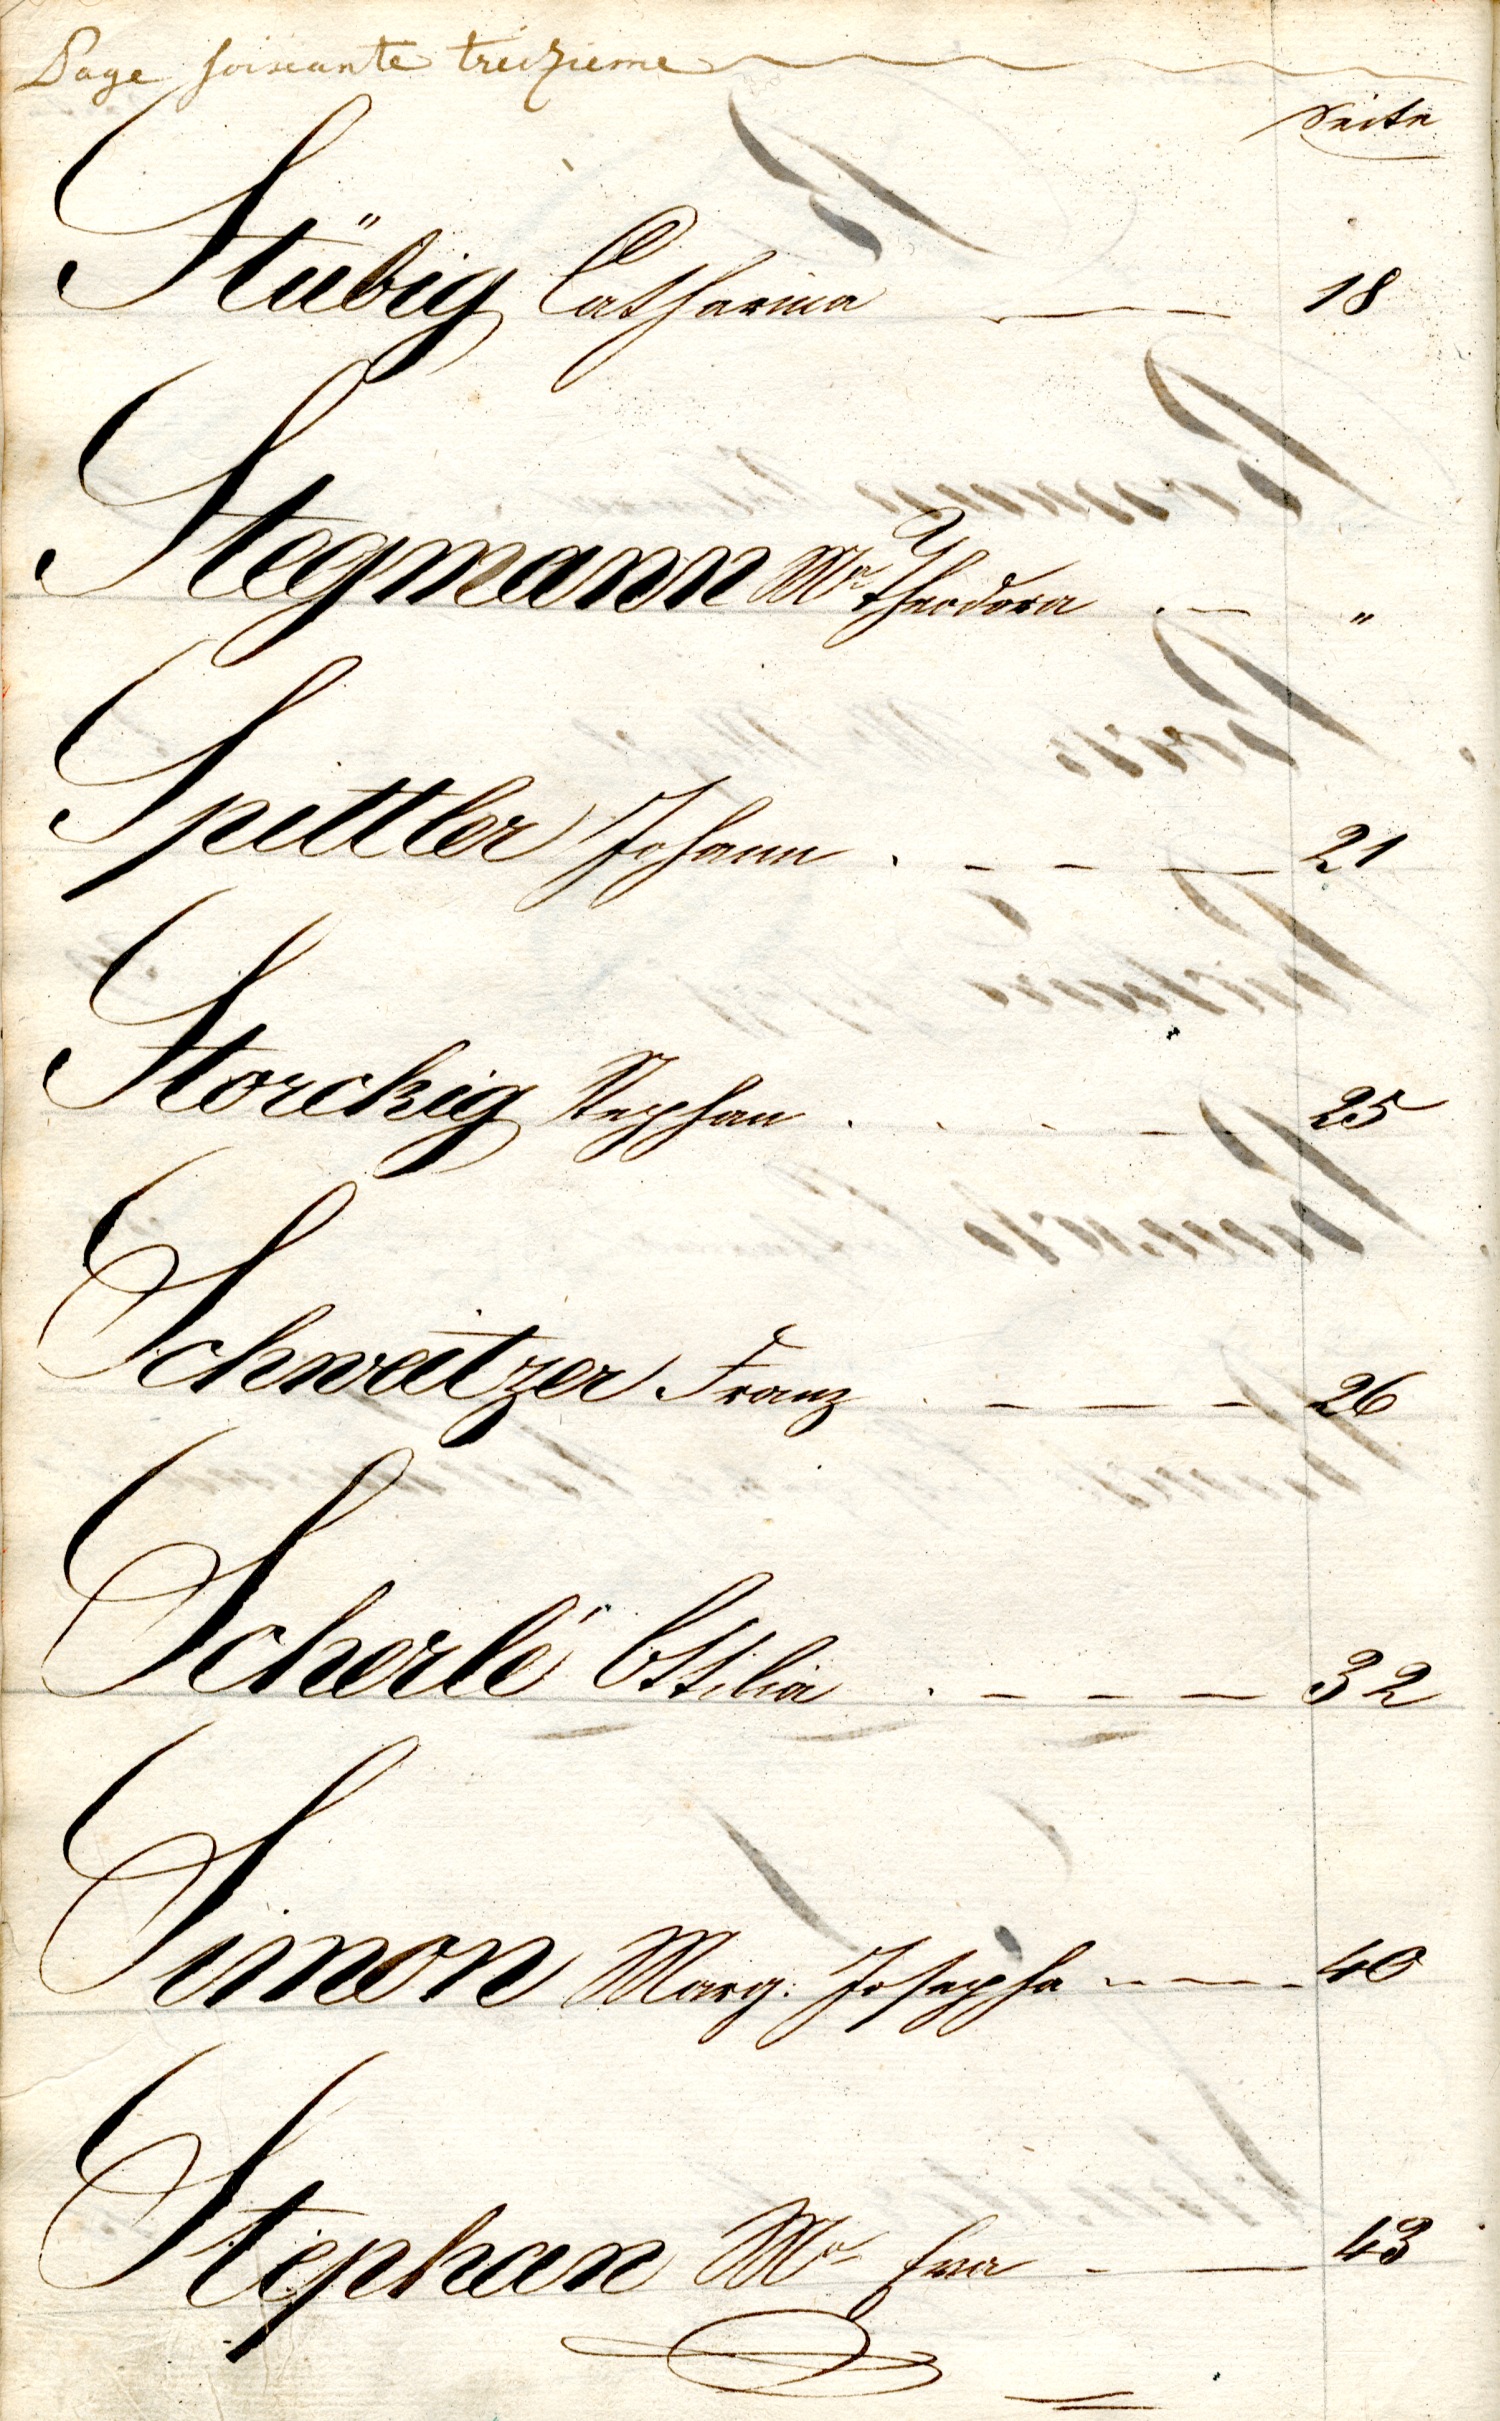 Page soixante treizieme
Seite
Stübig Catharina 18
Stegmann Mª Theodora . — "
Spittler Johann . - - — 21
Storckig Stephan . . . - - 25
Schweitzer Franz . - — - 26
Scherlé Ottilia . - - — 32
Simon Marg: Josepha - - — - 40
Stephan Mª Eva - — 43